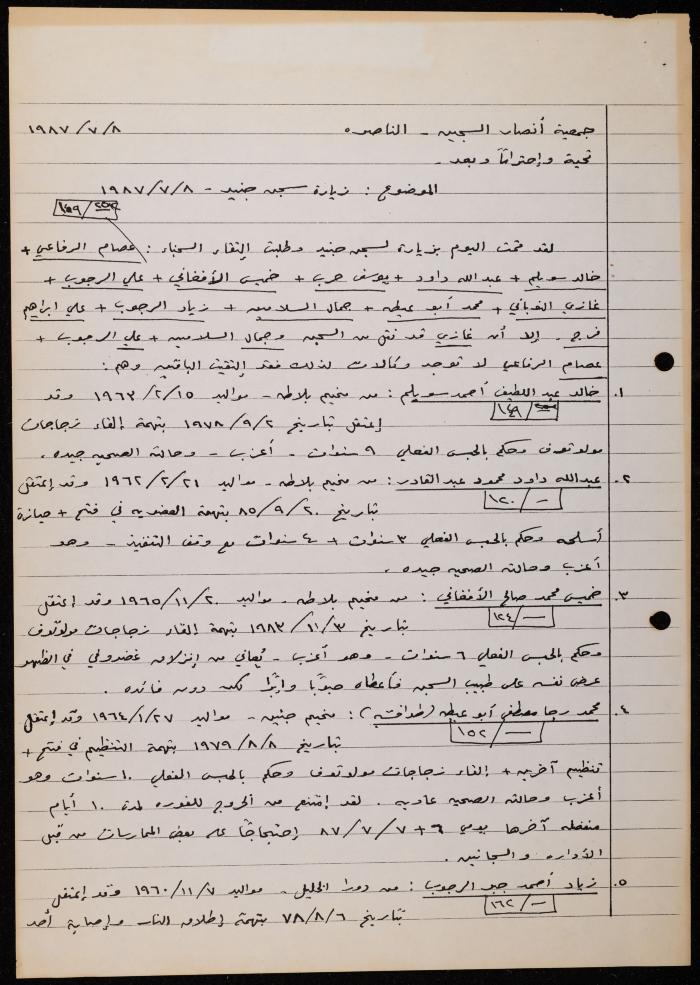 جمعية أنصار السجين - الناصره ١٩٨٧/٧/٨
تحية وإحتراماً وبعد -
الموضوع : زيارة سجن جنيد - ١٩٨٧/٧/٨
لقد قمت اليوم بزيارة لسجن جنيد وطلبت إلتقاء السجناء : عصام الرفاعي +
خالد سويلم + عبدالله داود + يوسف حرب + خميس الأفغاني + علي الرجوب +
غازي + محمد أبو عيطه + جمال السلامين + زياد الرجوب + علي ابراهيم
فرج . إلا أن غازي قد نقل من السجن وجمال السلامين + علي الرجوب +
عصام الرفاعي لا توجد وكالات لذلك فقد إلتقيت الباقين وهم :
١. خالد عبد اللطيف أحمد سويلم : من مخيم بلاطه - مواليد ١٩٦٣/٢/١٥ وقد
إعتقل بتاريخ ١٩٧٨/٩/٢ بتهمة إلقاء زجاجات
مولوتوف وحكم بالحبس الفعلي ٩ سنوات - أعزب - وحالته الصحيه جيده .
٢. عبدالله داود محمود عبد القادر : من مخيم بلاطه - مواليد ١٩٦٢/٢/٢١ وقد إعتقل
١٢٠/-
بتاريخ ٨٥/٩/٢٠ بتهمة العضويه في فتح + حيازة
أسلحه وحكم بالحبس الفعلي ٣ سنوات + ٤ سنوات مع وقف التنفيذ - وهو
أعزب وحالته الصحيه جيده .
٣. خميس محمد صالح الأفغاني : من مخيم بلاطه - مواليد ١٩٦٥/١١/٢٠ وقد إعتقل
١٢٤/-
بتاريخ ١٩٨٣/١١/٣ بتهمة إلقاء زجاجات مولوتوف
وحكم بالحبس الفعلي ٦ سنوات - وهو أعزب - يُعاني من إنزلاق غضروفي في الظهر
عرض نفسه على طبيب السجن فأعطاه حبوباً وإبراً لكن دون فائده .
٤. محمد رجا مصطفى أبو عيطه : مخيم جنين - مواليد ١٩٦٤/١/٢٧ وقد إعتقل
١٥٢/-
بتاريخ ١٩٧٩/٨/٨ بتهمة التنظيم في فتح +
تنظيم آخرين + إلقاء زجاجات مولوتوف وحكم بالحبس الفعلي ١٠ سنوات وهو
أعزب وحالته الصحيه عاديه . لقد إمتنع من الخروج للفوره لمدة ١٠ أيام
منفصله آخرها يومي ٦+٨٧/٧/٧ إحتجاجاً على بعض الممارسات من قبل
الأداره والسجانين .
٥. زياد أحمد جبر الرجوب : من دورا الخليل - مواليد ١٩٦٠/١١/٧ وقد إعتقل
١٦٢/-
بتاريخ ٧٨/٨/٦ بتهمة إطلاق النار وإصابة أحد